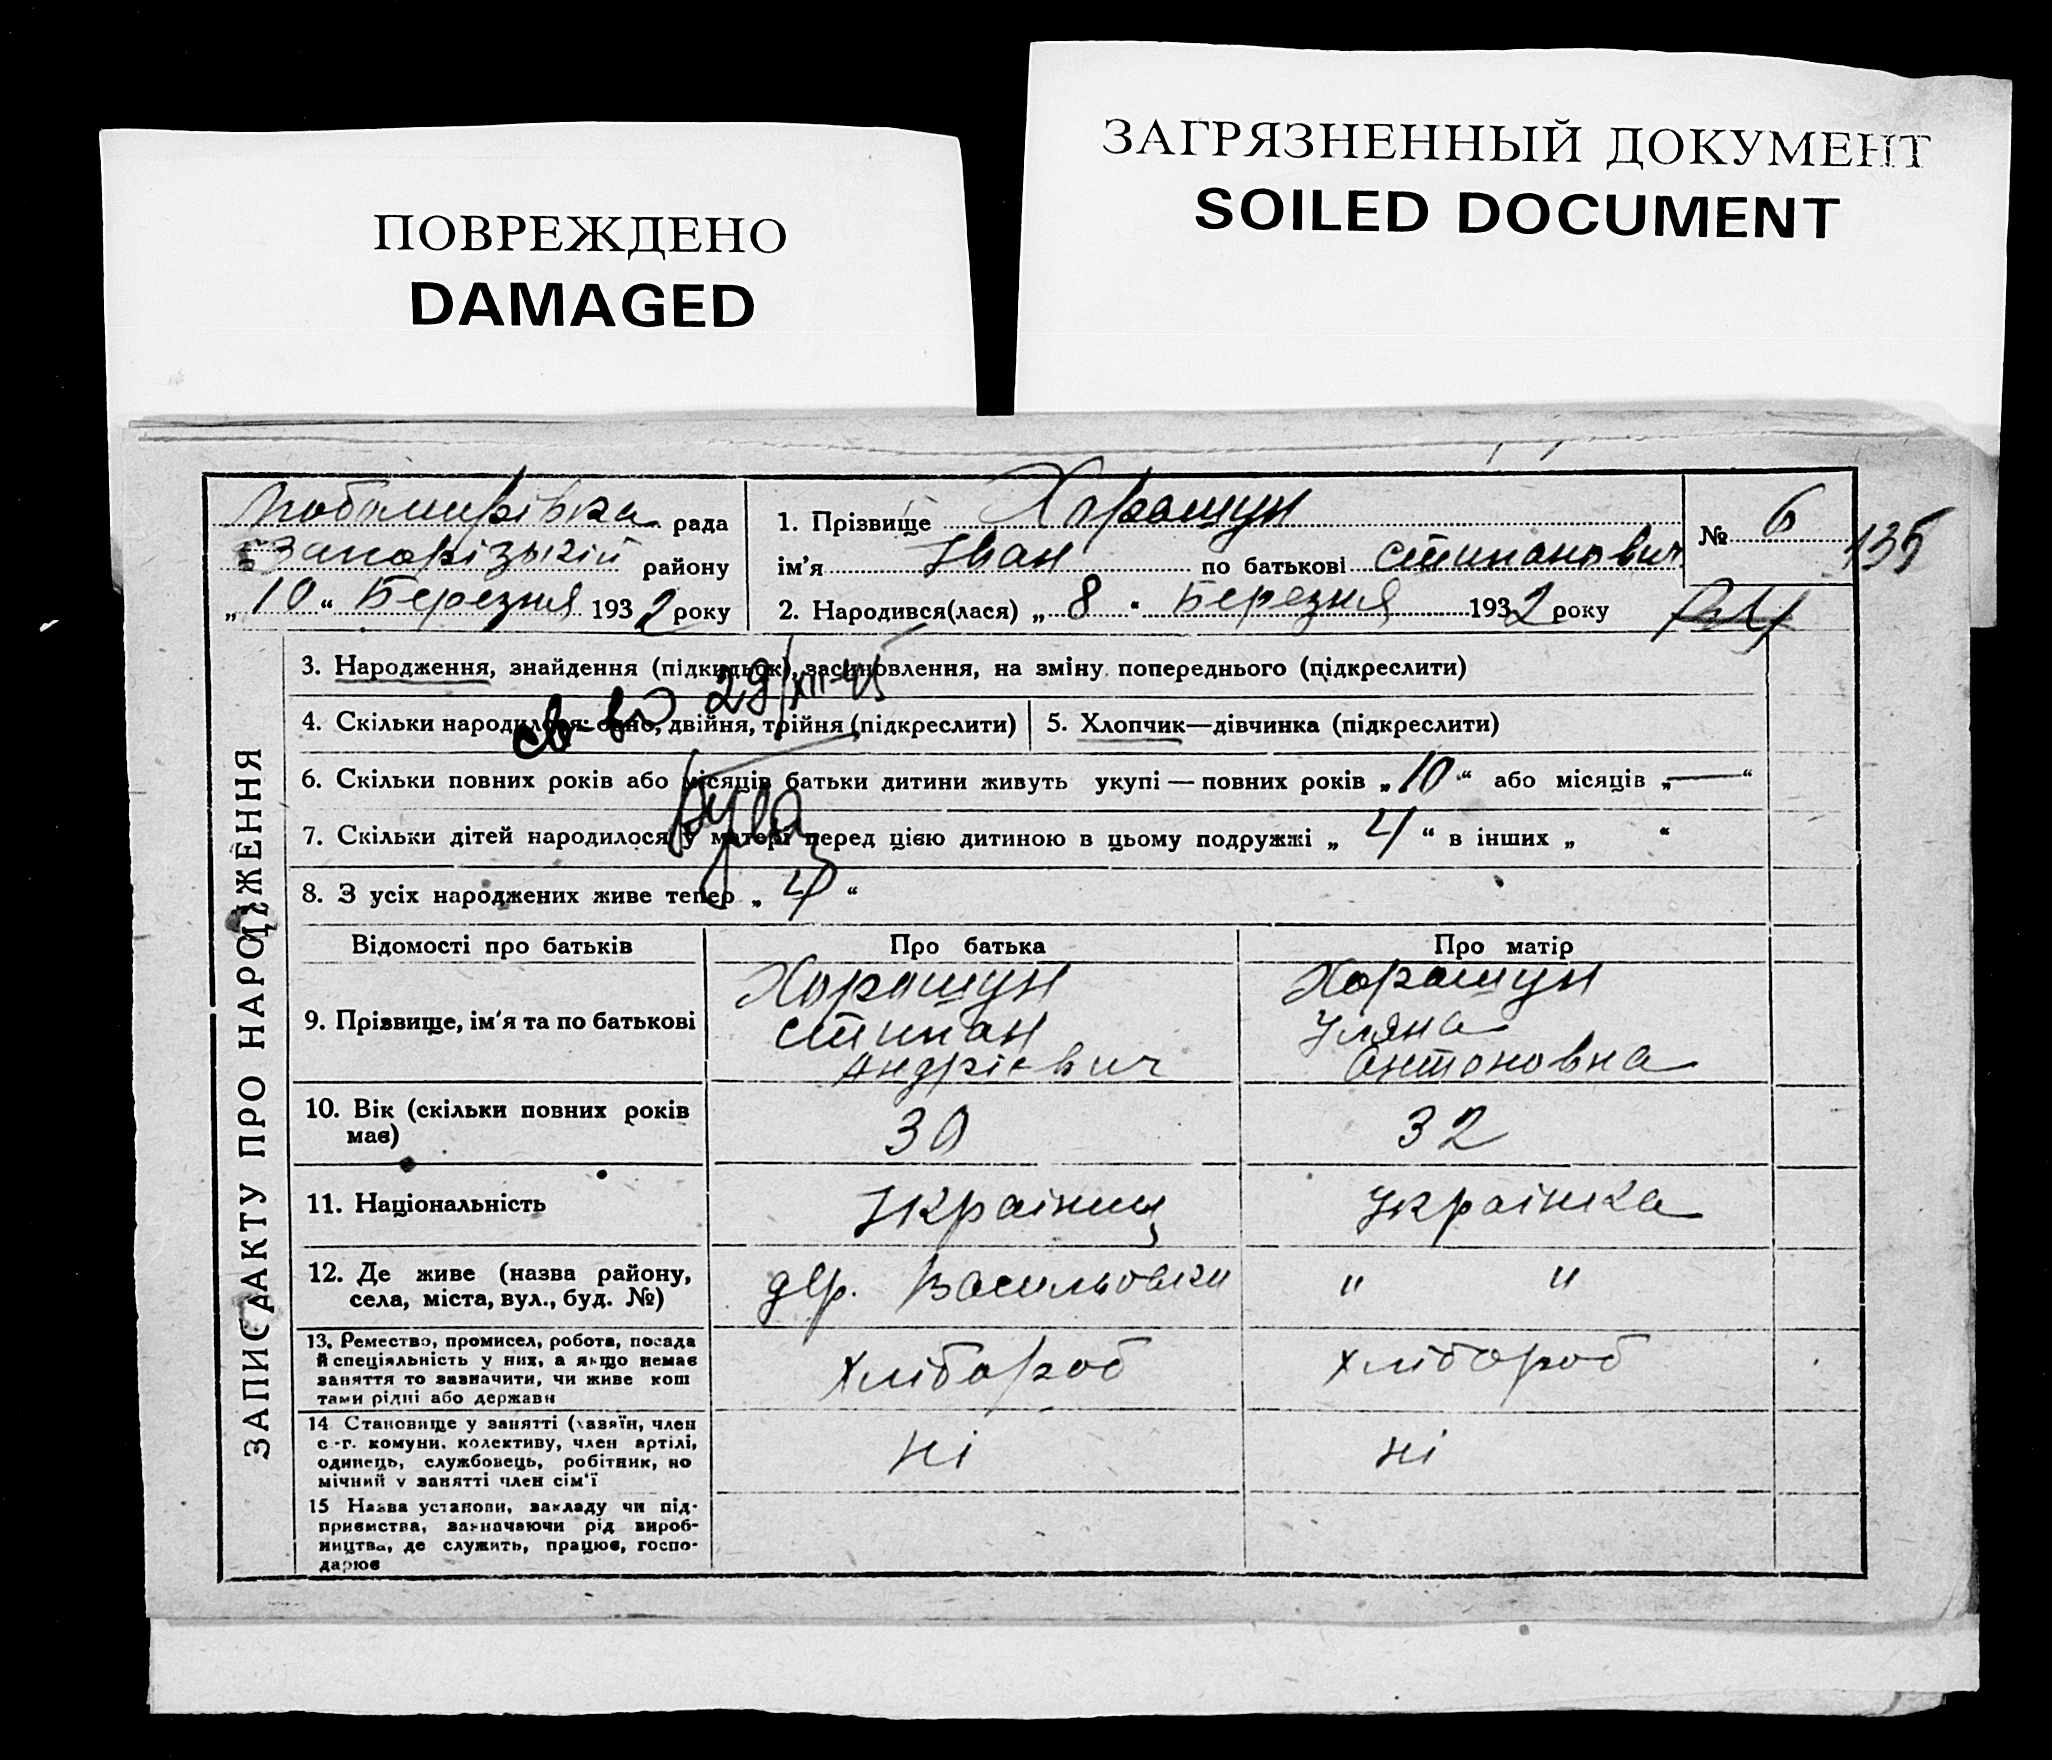 ЗАГРЯЗНЕННЫЙ ДОКУМЕНТ
SOILED DOCUMENT
ПОВРЕЖДЕНО
DAMAGED
Любомирівка рада
Запорізький району
„ 10 “ Березня 1932 року
1. Прізвище Хорошун
ім'я Іван по батькові Стипанович
2. Народився(лася) „ 8 “ Березня 1932 року
№ 6
135
ЗАПИС АКТУ ПРО НАРОДЖЕННЯ
3. Народження, знайдення (підкидьок), засиновлення, на зміну попереднього (підкреслити)
29/XII-45
4. Скільки народилося: одно, двійня, трійня (підкреслити)
5. Хлопчик—дівчинка (підкреслити)
св-во
6. Скільки повних років або місяців батьки дитини живуть укупі — повних років „ 10 “ або місяців „ — “
7. Скільки дітей народилося у матері перед цією дитиною в цьому подружжі „ 4 “ в інших „ “
8. З усіх народжених живе тепер „ 4 “
Відомості про батьків Про батька Про матір
9. Прізвище, ім'я та по батькові
Хорошун
Стипан
Андрієвич
Хорошун
Уляна
Антоновна
10. Вік (скільки повних років
має)
30
32
11. Національність
Українец
Українка
12. Де живе (назва району,
села, міста, вул., буд. №)
дер. Васильовки
" "
13. Ремество, промисел, робота, посада
й спеціяльність у них, а якщо немає
заняття то зазначити, чи живе кош
тами рідні або держави
хлібороб
хлібороб
14 Становище у занятті (хазяїн, член
с.-г. комуни, колективу, член артілі,
одинець, службовець, робітник, по
мічний у занятті член сім'ї
ні
ні
15 Назва установи, закладу чи під-
приємства, зазначаючи рід вироб-
ництва, де служить, працює, госпо-
дарює